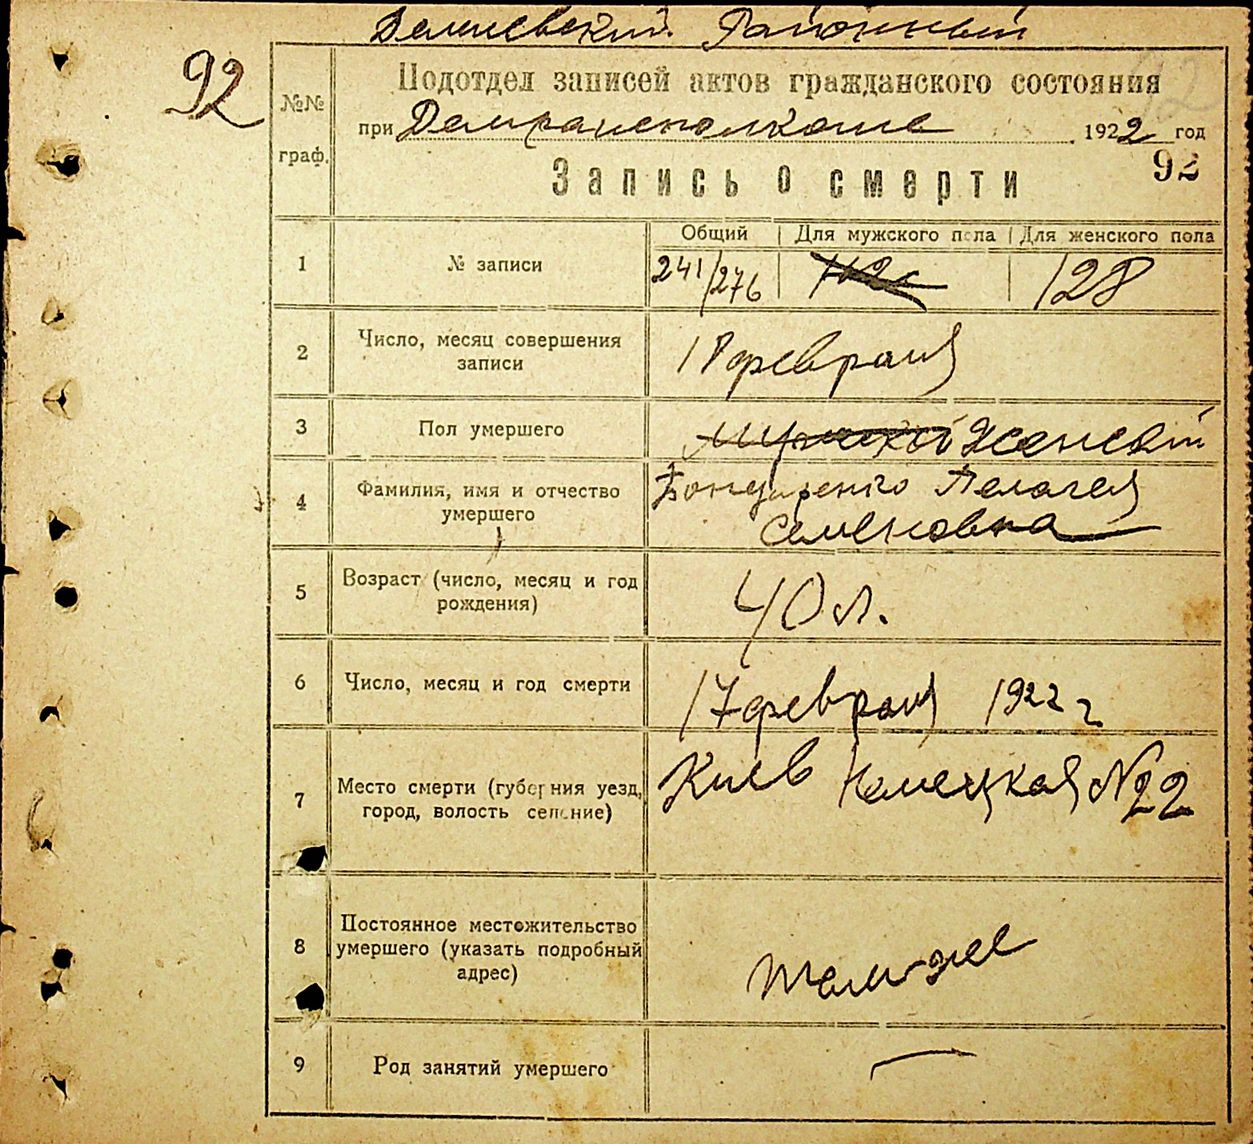 Демиевский Районный
92
№№ граф.
Подотдел записей актов гражданского состояния
при Демрайисполкоме 1922 год
Запись о смерти
92
Общий Для мужского пола Для женского пола
1 № записи 241/276 128
2 Число, месяц совершения записи 18 февраля
3 Пол умершего мужской женский
4 Фамилия, имя и отчество Бондаренко Пелагея
умершего Семеновна
5 Возраст (число, месяц и год рождения) 40 л.
6 Число, месяц и год смерти 17 февраля 1922 г
7 Место смерти (губерния уезд, Киев Немецкая № 22
город, волость селение)
8 Постоянное местожительство
умершего (указать подробный там-же
адрес)
9 Род занятий умершего —